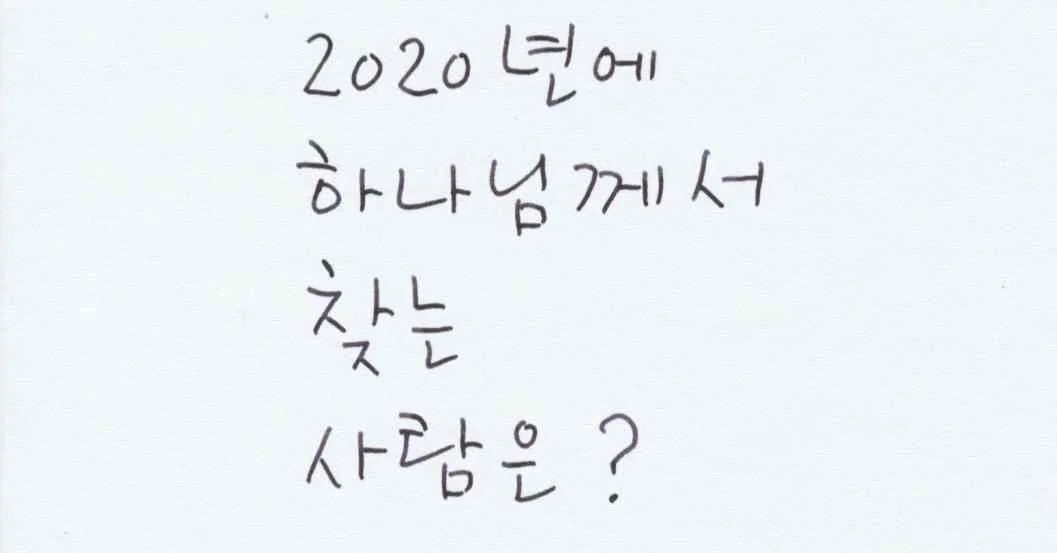 2020년에
하나님께서
찾는
사람은?